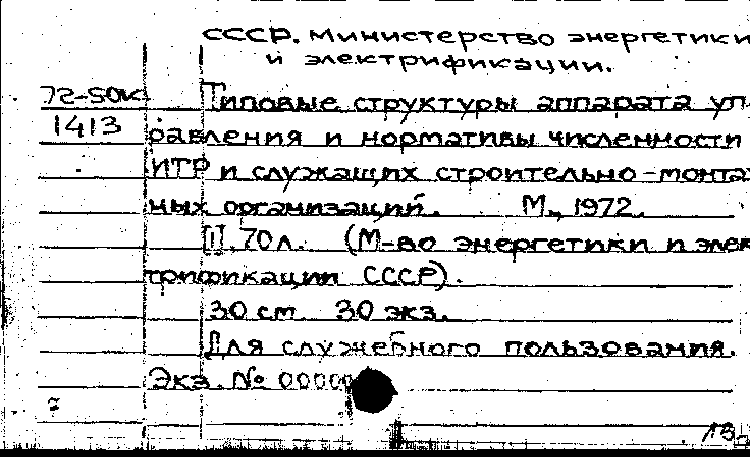 СССР. Министерство энергетики
и электрификации.
72-50к
1413
Типовые структуры аппарата уп
равления и нормативы численности
ИТР и служащих строительно-монта
ных организаций. М., 1972.
II, 70 л. (М-во энергетики и элек
трификации СССР).
30 см 30 экз.
Для служебного пользования.
Экз. № 00000